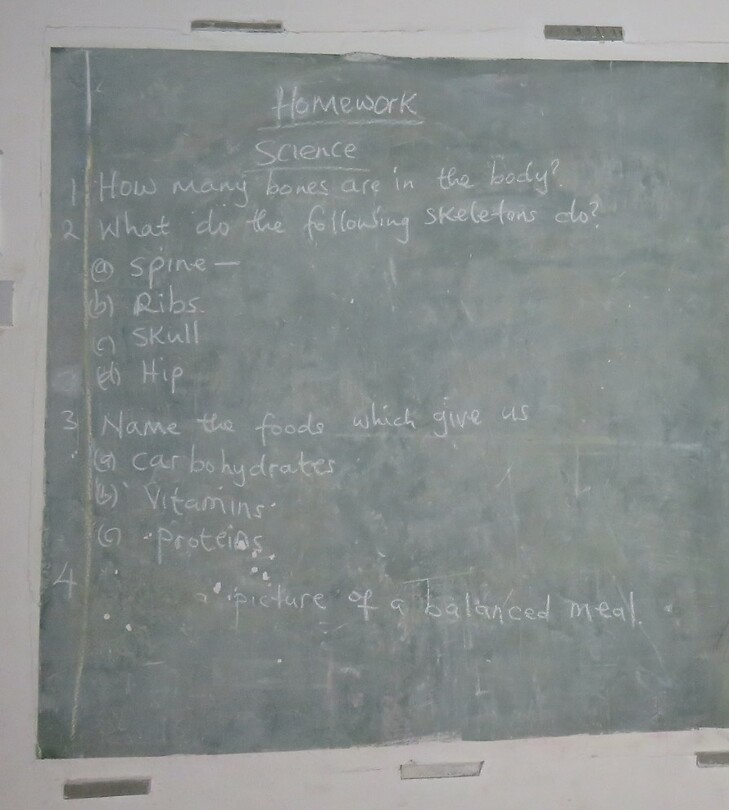 Homework
Science
1 How many bones are in the body?
2 What do the following skeletons do?
(a) Spine —
(b) Ribs.
(c) Skull
(d) Hip
3 Name the foods which give us
(a) Carbohydrates
(b) Vitamins
(c) Proteins
4
a picture of a balanced meal.